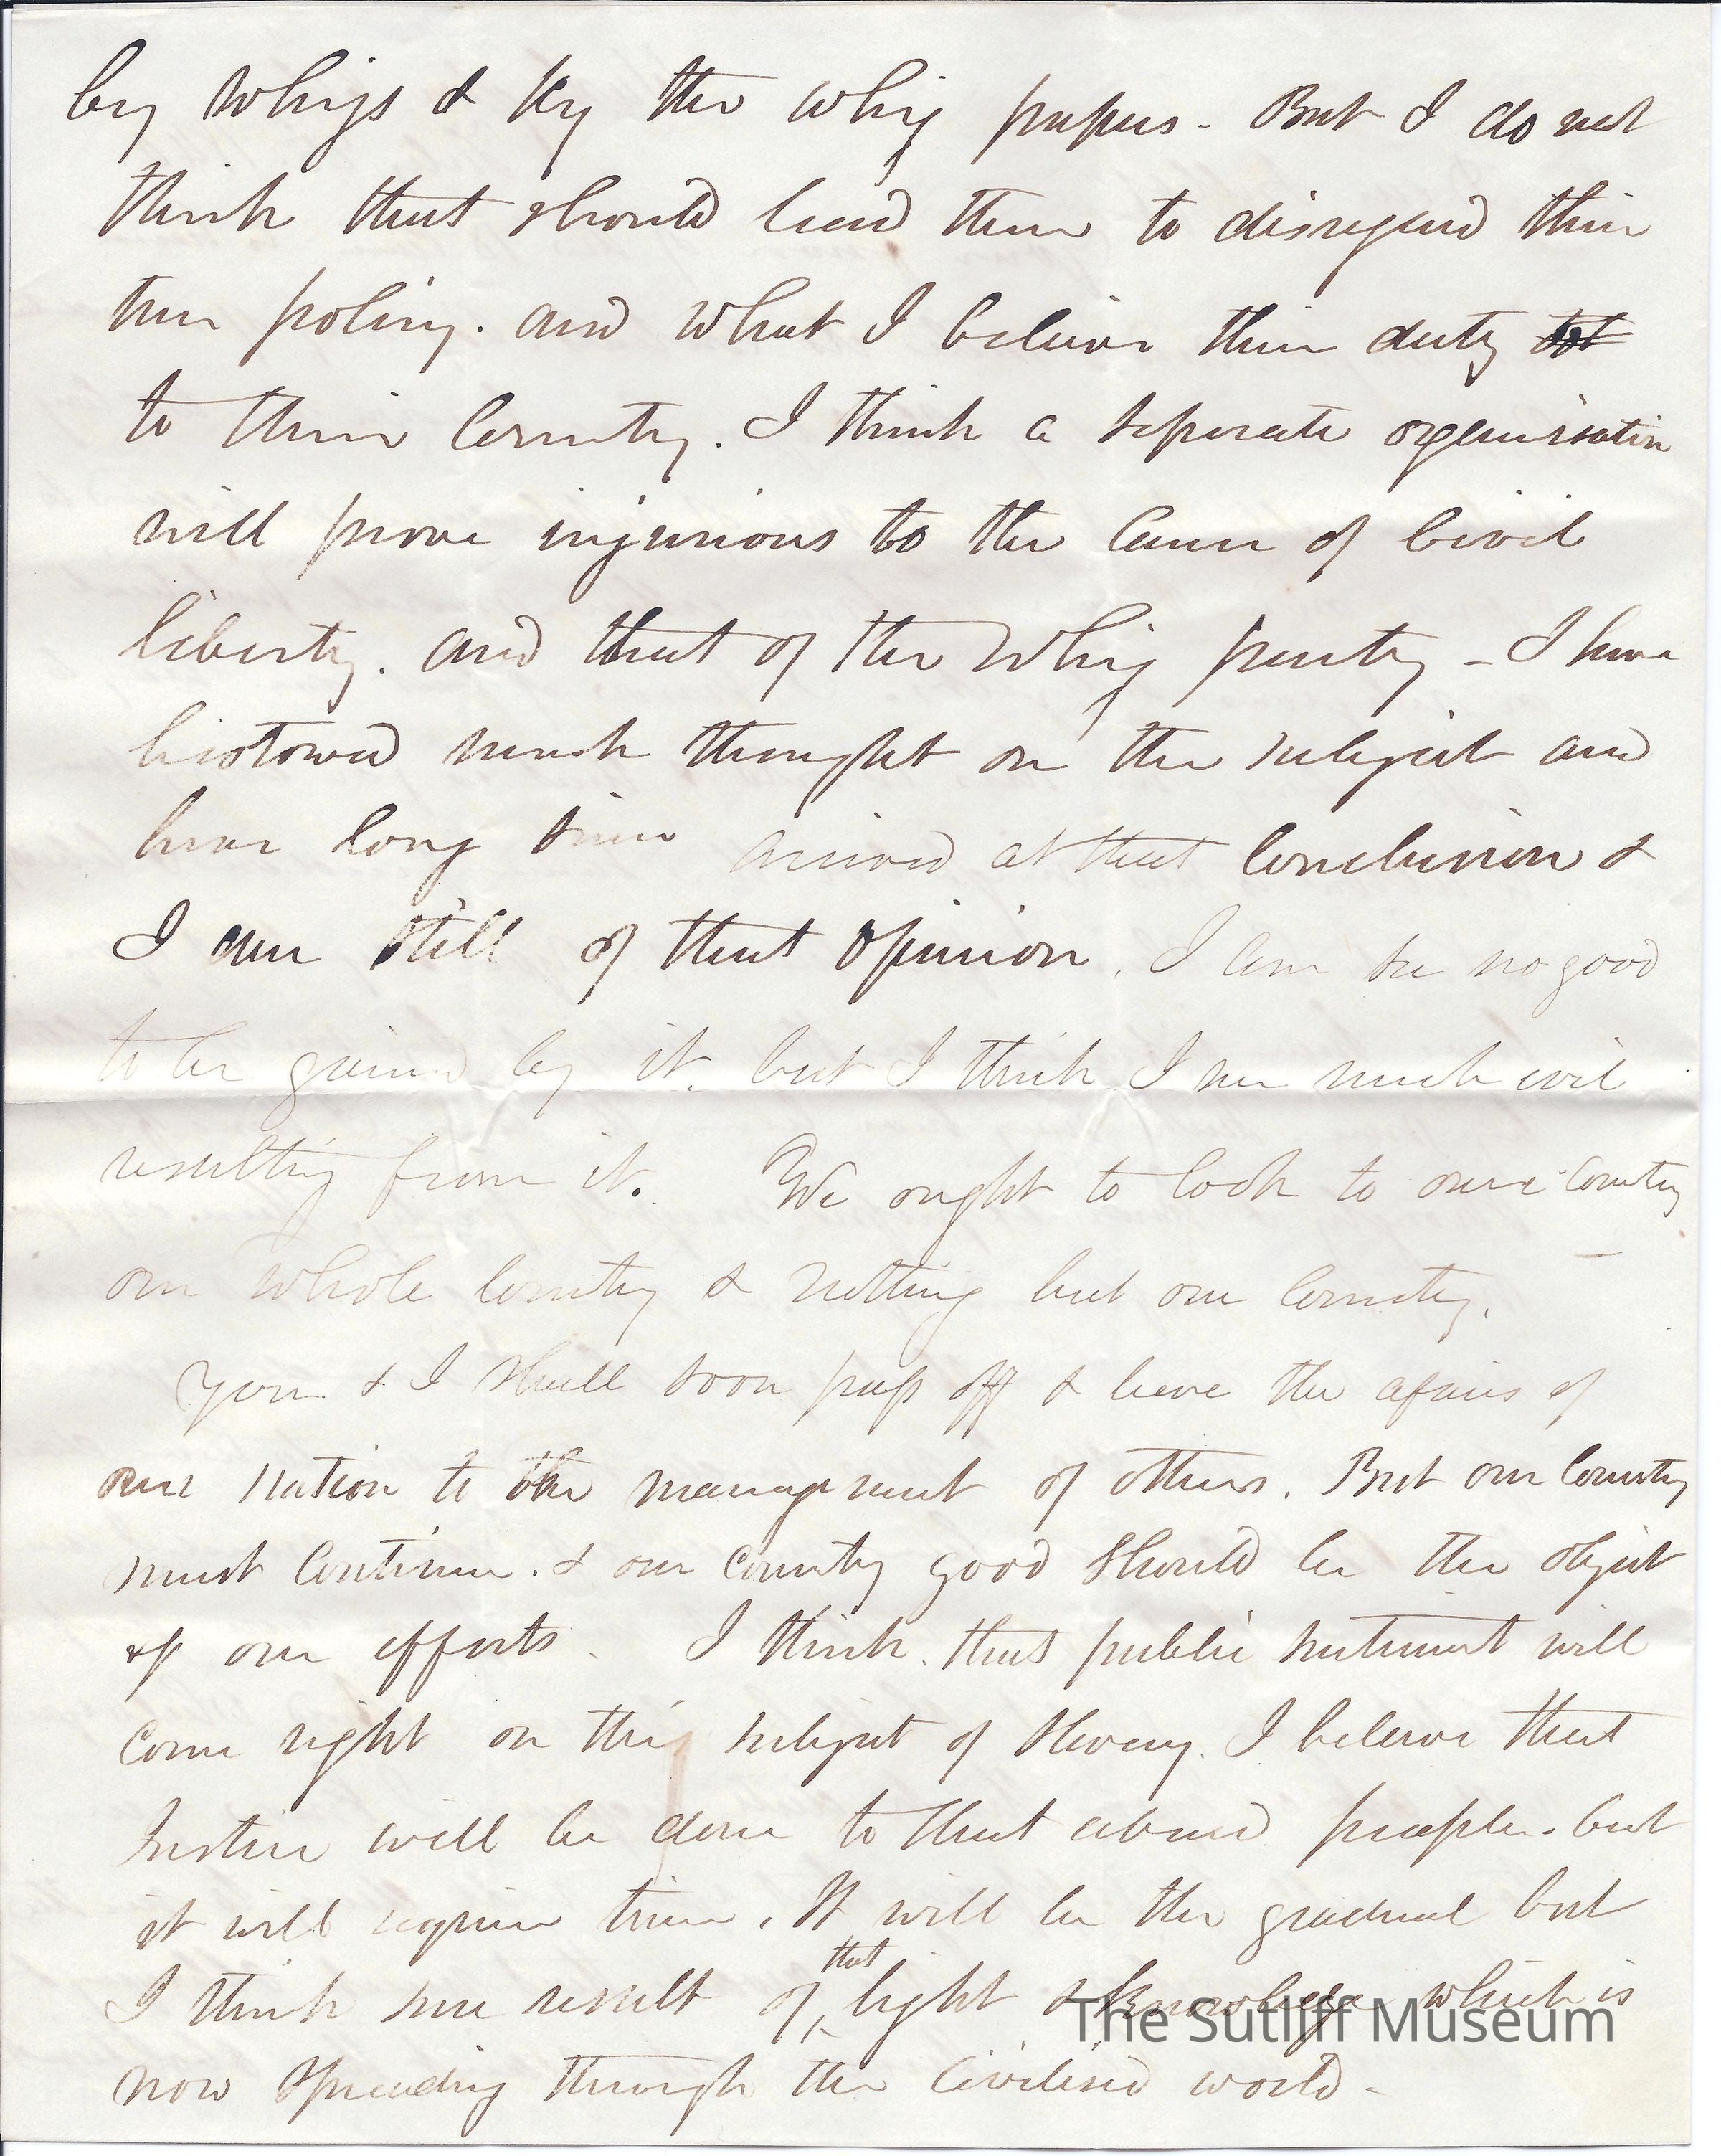 by Whigs & by the whig papers - But I do not
think that should lead them to disregard their
true policy. and what I believe their duty
to their Country. I think a seperate organisation
will prove injurious to the Cause of Civil
liberty. and that of the Whig party - I have
bestowed much thought on the subject and
have long since arived at that Conclusion &
I am still of that opinion. I can see no good
to be gained by it. but I think I see much evil
resulting from it. We ought to look to our Country
our whole Country & nothing but our Country.
You & I shall soon pass off & leave the afairs of
our Nation to the management of others. But our Country
must Continue. & our Country good should be the object
of our efforts. I think that public sentiment will
come right on this subject of slavery. I beleive that
Justice will be done to that abused people - but
it will require time. It will be the gradual but
I think sure result of that light & knowledge which is
now spreading through the Civilised world -
The Sutliff Museum